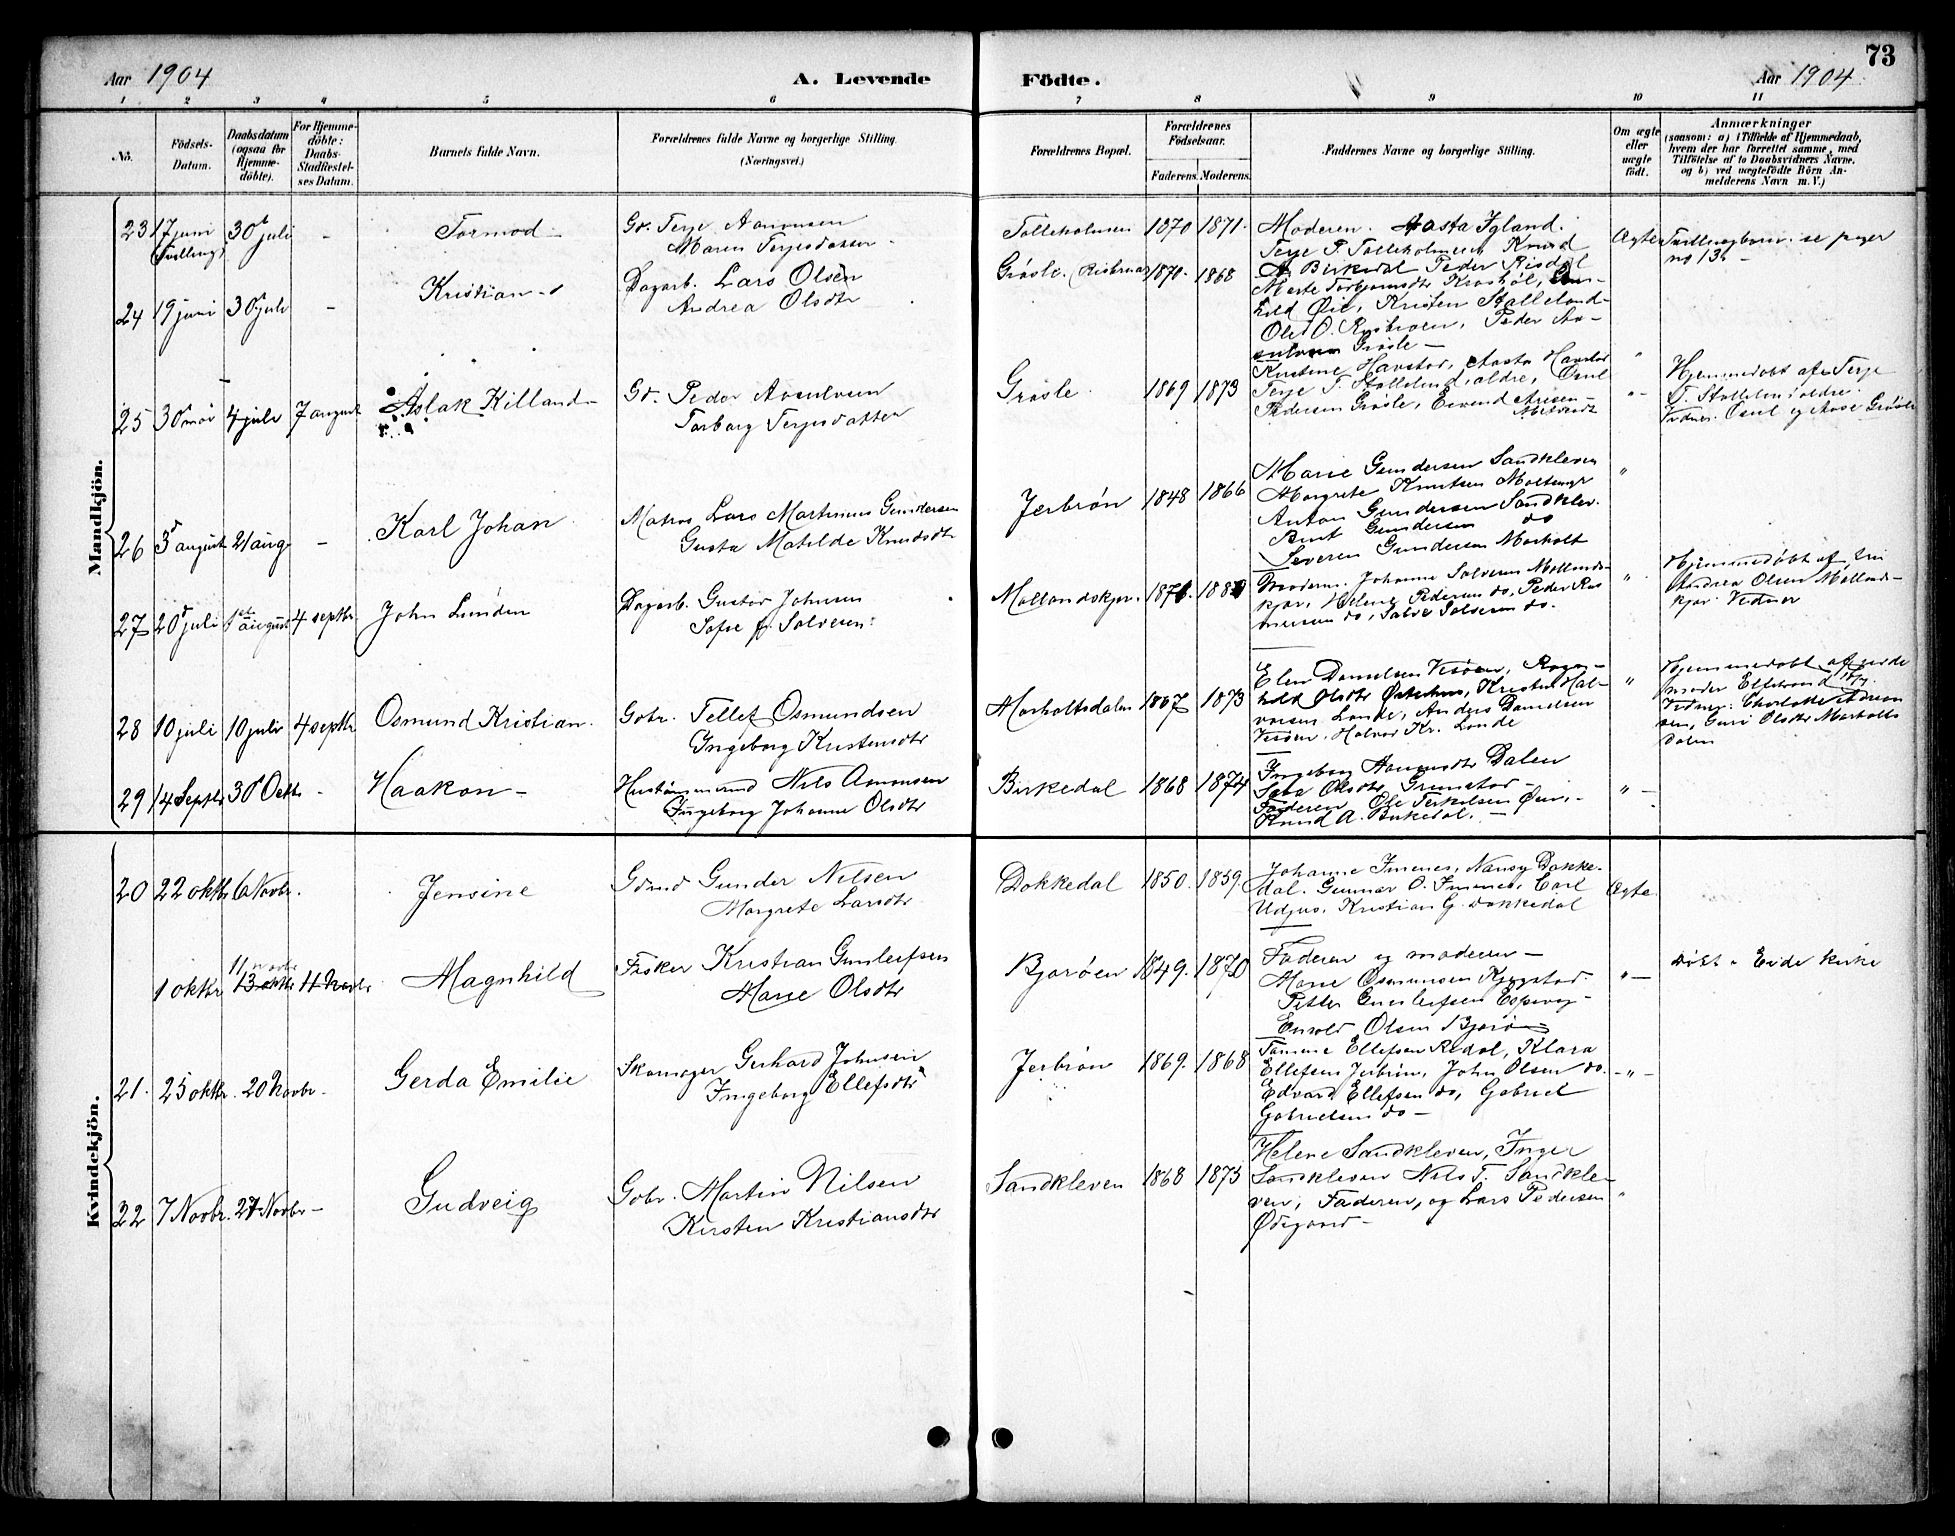 73
Aar 1904
A. Levende
Födte.
Aar 1904
1 2 3 4 5 6 7 8 9 10 11
No.
Födsels-
Datum.
Daabsdatum
(ogsaa for
Hjemme-
döbte).
For Hjemme-
döbte:
Daabs-
Stadfæstel-
ses Datum.
Barnets fulde Navn.
Forældrenes fulde Navne og borgerlige Stilling.
(Næringsvei.)
Forældrenes Bopæl.
Forældrenes
Födselsaar.
Faderens. Moderens.
Faddernes Navne og borgerlige Stilling.
Om ægte
eller
uægte
födt.
Anmærkninger
(saasom: a) i Tilfælde af Hjemmedaab,
hvem der har forrettet samme, med
Tilföielse af to Daabsvidners Navne.
og b) ved uægtefödte Börn An-
melderens Navn m. V.)
Mandkjön.
23 17 juni 30 juli - Tormod -
(Tvilling)
Gr. Terje Aanonsen
Maren Terjesdatter
Tolleholmen 1870 1871.
Moderen. Aasta Igland.
Terje T. Tolleholmen Knud
Ægte Tvillingbarn. se piger
no 13 -
24 19 juni 30 juli - Kristian
Dagarb. Lars Olsen
Andrea Olsdtr
Grøsle. 1870. 1868
A Birkedal Peder Risdal
hild Øie, Kristen Stalleland
Ole O. Peder
Grøsle -
25 30 mai 4 juli 7 august Aslak Killand -
Gr. Peder
Torborg Terjesdatter
Grøsle 1869 1873
Kirstine Havstad, Aasta Havstad
Terje T. Stalleland ældre,
Pedersen Grøsle, Eivend
" -
Hjemmedøbt af Terje
T. Stalleland ældre.
Vidner. og Aase Grøsle
26 3 august 21 aug - Karl Johan
Matros Lars Martinius Gundersen
Gusta Matilde Knudsdtr
Jerbrøn 1848 1866
Marie Gundersen Sandkleven
Margrete Knutsen
Anton Gundersen Sandklev.
Gundersen do
Severin Gundersen Marholt
"
27 20 juli 1 august 4 septbr John Lunden
Dagarb. Gustav Johnsen
Sofie f. Salvesen.
Mollandskjær. 187
Moderen. Johanne Salvesen Mollands-
kjær, Helene Pedersen do, Peder Ras
mussen do, Salve Salvesen do.
"
Hjemmedøbt af
Andrea Olsen Mollands-
kjær Vidner
28 10 juli 10 juli 4 septbr Osmund Kristian.
Gbr. Tellef Osmundsen
Ingeborg Kristensdtr
Marholtsdalen 1867 1873
Elen Danielsen Vesøen, Ragn-
hild Olsdtr Kristen Hal-
vorsen Londe, Anders Danielsen
Vesøen, Halvor Kr. Londe
"
Hjemmedøbt af jorde
moder Ellstrand
Vidner. Charlotte
sen, Guri Olsdtr Marholts
dalen
29 14 Septbr 30 Octbr - Haakon -
Hustømmermand Nils Amonsen
Ingeborg Johanne Olsdtr
Birkedal 1868 1874
Ingeborg Dalen
Olsdtr Grimstad -
Faderen Ole Terkelsen Øien, -
Knud A. Birkedal. -
" -
Kvindekjön.
20 22 oktbr 6 Novbr. Jensine
Gdmd Gunder Nilsen
Margrete Larsdtr
Dokkedal 1850. 1859.
Johanne Imenes, Nansy Dokke-
dal. Gunnar O. Imenes, Carl
Udjus, Kristian G. Dokkedal
Ægte.
1 oktbr 13 oktbr 11 Novbr Magnhild
11 novbr
Fisker Kristian Gunleifsen
Marie Olsdtr
Bjorøen 1849. 1870
Faderen og moderen -
Marie Osmunsen
Petter Gunleifsen Espevig -
Olsen Bjorøen
" -
Døbt i Eide kirke
21. 25 oktbr. 20 Novbr. Gerda Emilie
Skomager Gerhard Johnsen
Ingeborg Ellefsdtr
Jerbrøn 1869. 1868
Tomine Ellefsen Redal, Klara
Ellefsen Jerbrøn, John Olsen do.
Edvard Ellefsen do, Gabriel
Gabrielsen do -
- " -
22 7 Novbr. 27 Novbr - Gudveig
Gbr. Martin Nilsen
Kirsten Kristiansdtr
Sandkleven 1868 1873
Helene Sandkleven, Inger
Sandkleven Nils T. Sandkle-
ven, Faderen, og Lars Pedersen
Ødegaard -
"